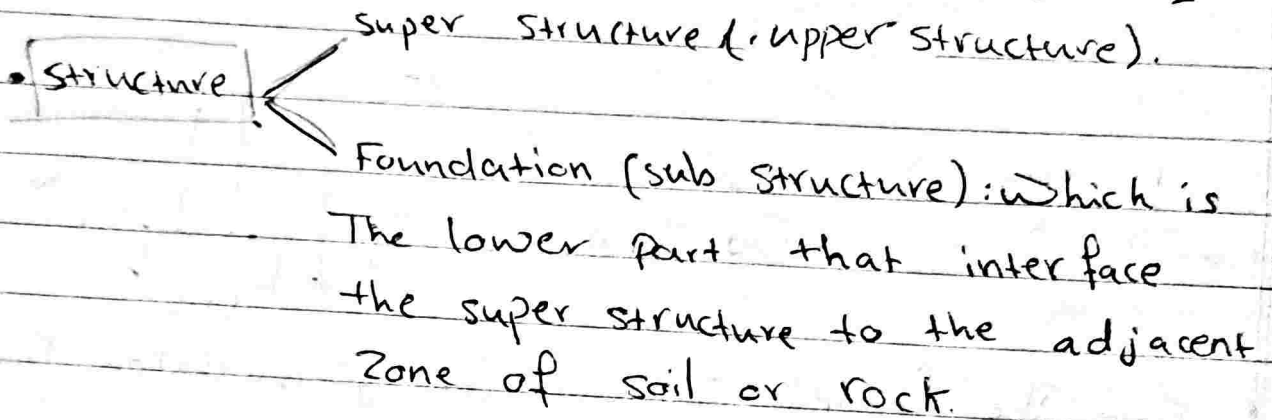 super structure (. upper structure).
• structure
Foundation (sub structure): which is
The lower part that inter face
the super structure to the adjacent
Zone of soil or rock.